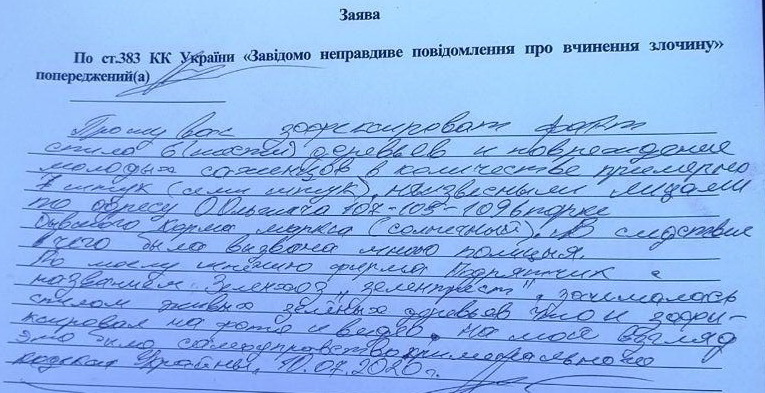 Заява
По ст.383 КК України «Завідомо неправдиве повідомлення про вчинення злочину»
попереджений(а)
Прошу вас зафиксироват факт
спила 6 (шести) деревьев и повреждение
молодых саженцев в количестве примерно
7 штук (семи штук), неизвесными лицами
по адресу О Ольжича 107-105-109 в парке
бывшого Карма маркса (солнечный). В следствие
чего была вызвана мною полиция.
По моему мнению фирма Подрятчик с
названием Зеленхоз "зелентрест", занималась
спилом живых зелёных деревьев что и зафи-
ксировал на фото и видео, на мой взгляд
это было самоуправство
Украйны, 10.07.2020г.